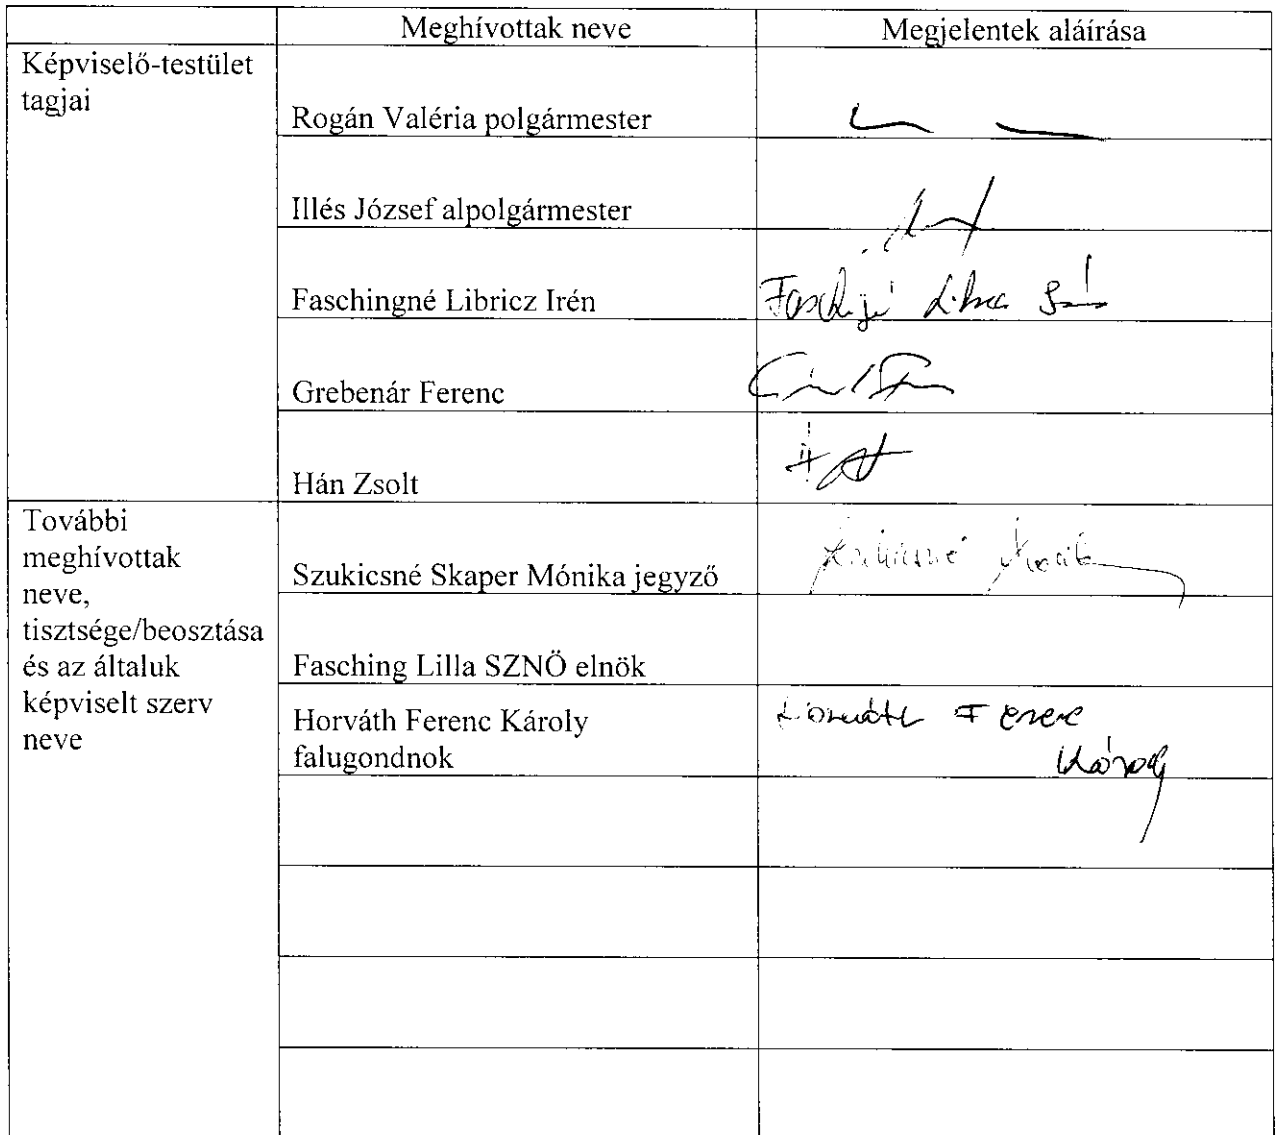 Meghívottak neve
Megjelentek aláírása
Képviselő-testület
tagjai
Rogán Valéria polgármester
Illés József alpolgármester
Faschingné Libricz Irén
Grebenár Ferenc
Hán Zsolt
További
meghívottak
neve,
tisztsége/beosztása
és az általuk
képviselt szerv
neve
Szukicsné Skaper Mónika jegyző
Fasching Lilla SZNÖ elnök
Horváth Ferenc Károly
falugondnok
Horváth Ferenc
Károly